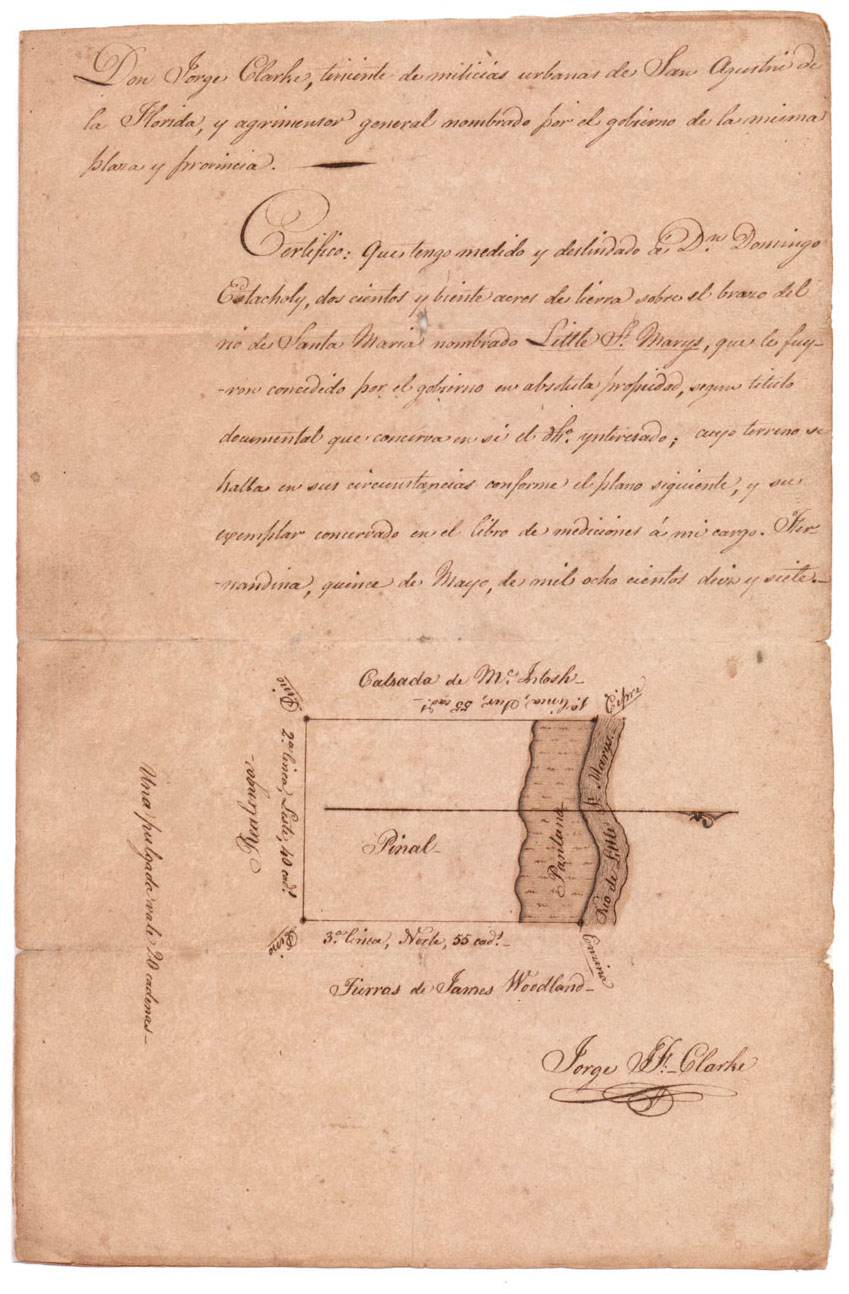 Don Jorge Clarke, teniente de milicias urbanas de San Agustin de
la Florida, y agrimensor general nombrado por el gobierno de la misma
plaza y provincia.
Certifico: Que tengo medido y deslindado á Dn. Domingo
Estacholy, dos cientos y biente acres de tierra sobre el brazo del
rio de Santa Maria nombrado Little St. Marys, que le fuy-
-ron concedido por el gobierno en absoluta propiedad, segun titulo
documental que concerva en si el dho. ynterezado; cuyo terreno se
halla en sus circunstancias conforme el plano siguiente, y su
exemplar concervado en el libro de mediciones á mi cargo. Fer-
-nandina, quince de Mayo, de mil ocho cientos diez y siete.-
Calsada de Mc. Intosh-
1a. linea, Sur, 55 cads.
Pino
Cipre
2a. linea, Leste, 40 cads.
Realengo-
Pinal-
Pantano
Rio de Little St. Marys-
Una pulgada vale 20 cadenas-
Pino
3a. linea, Norte, 55 cads.-
Encino
Tierras de James Woodland-
Jorge J. F. Clarke